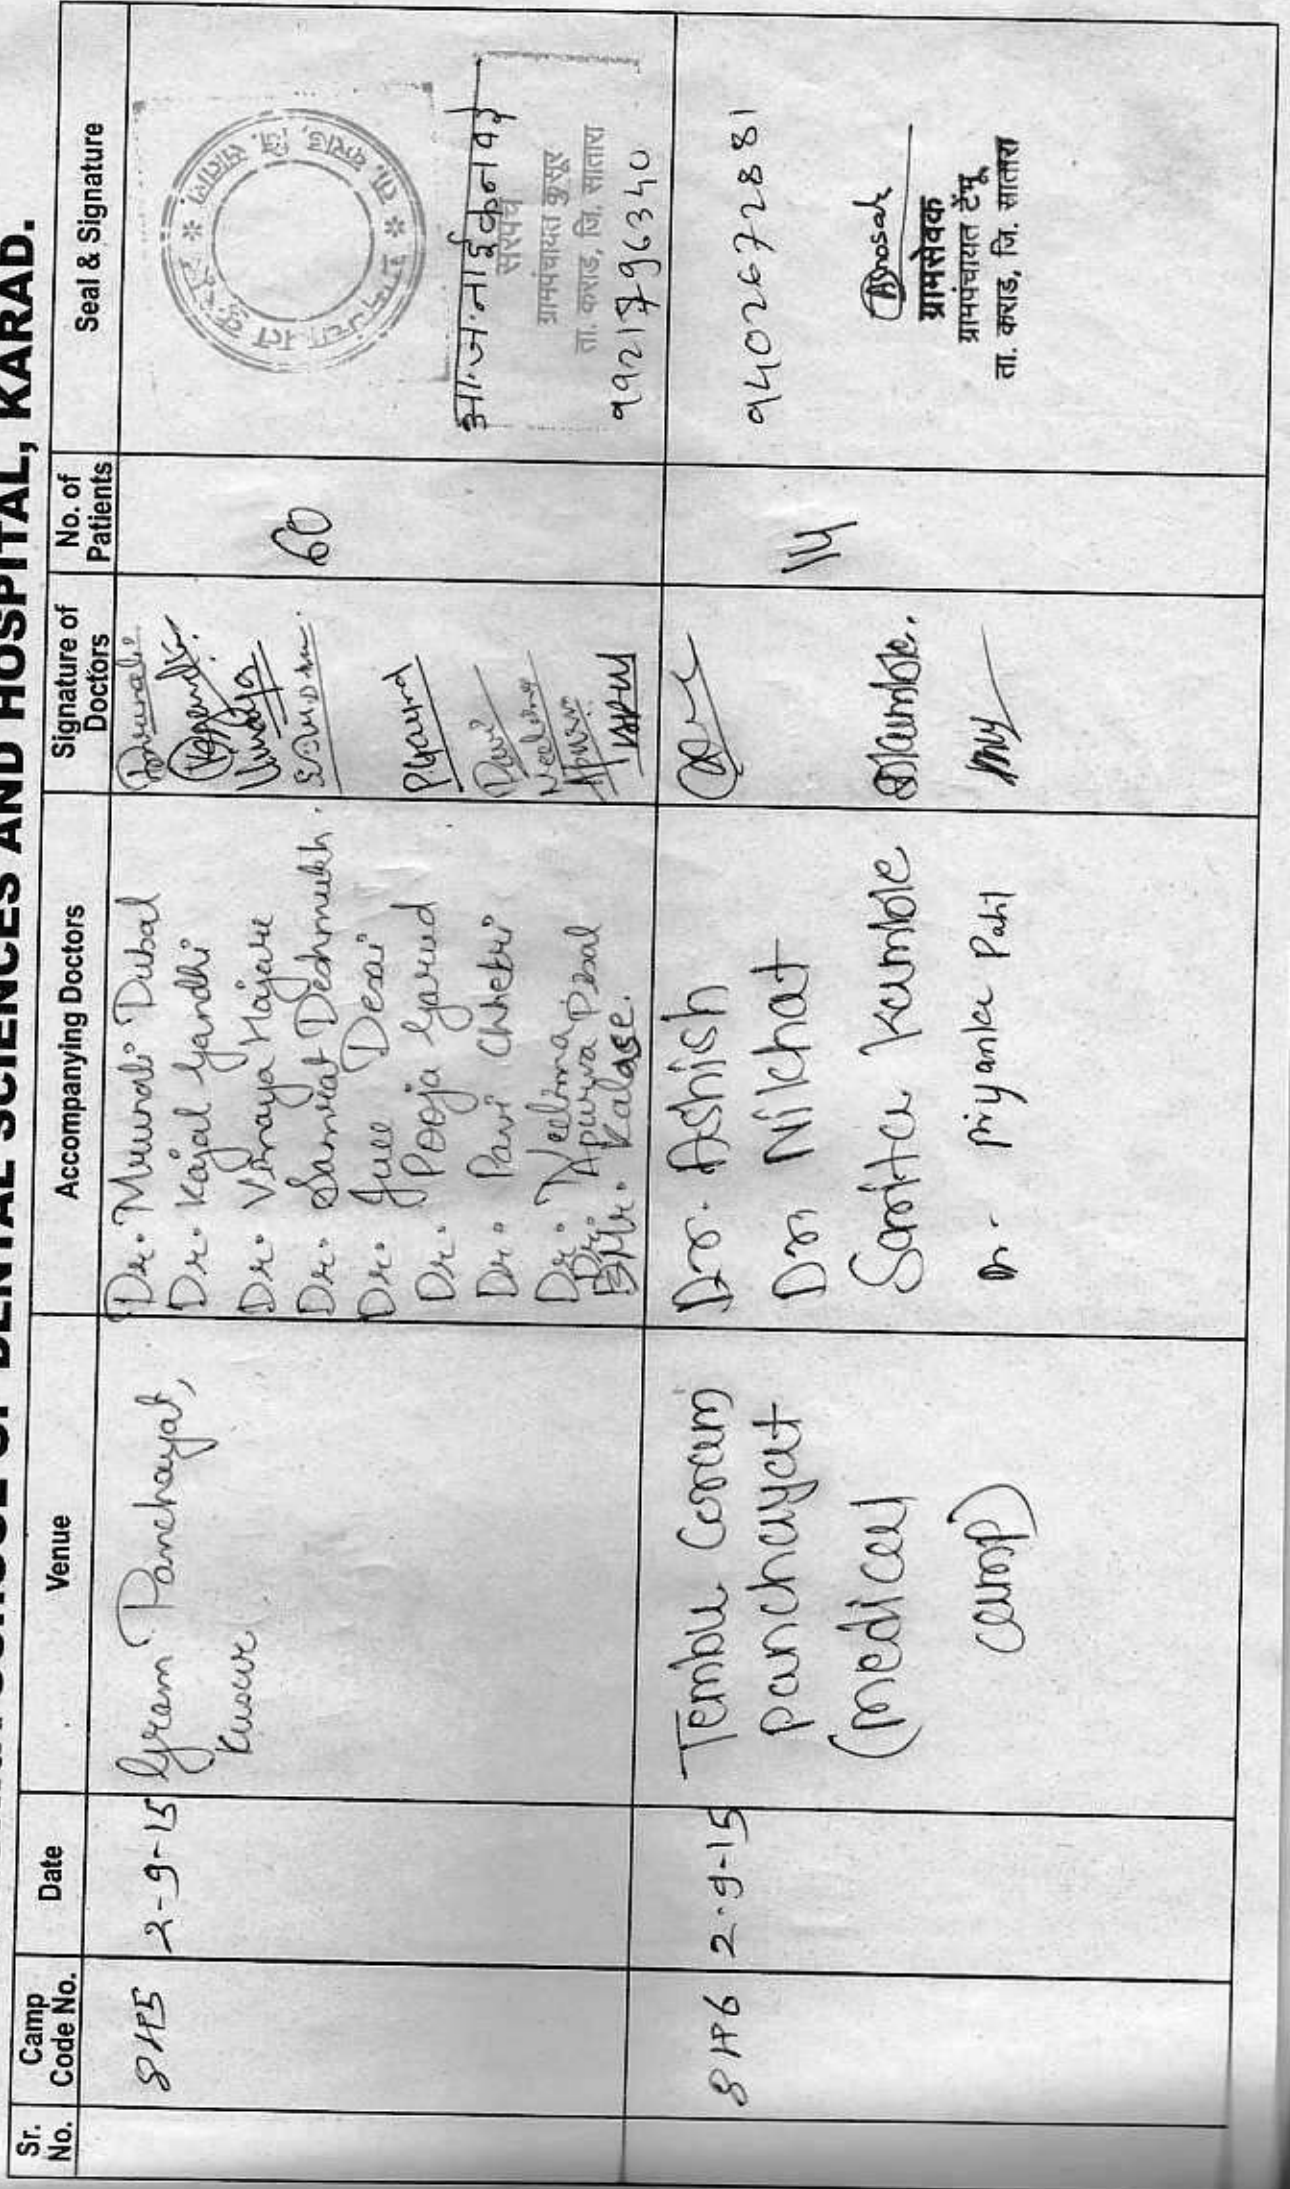 SCHOOL OF DENTAL SCIENCES AND HOSPITAL, KARAD.
Sr. No.
Camp Code No.
Date
Venue
Accompanying Doctors
Signature of Doctors
No. of Patients
Seal & Signature
2-9-15
Gram Panchayat,
Kusur.
Dr. Mrunali Dubal
Dr. Kajal Gandhi
Dr. Vinaya Hajare
Dr. Samrat Deshmukh.
Dr. Juee Desai
Dr. Pooja Garud
Dr. Pavi Chhetri
Dr. Neelima
Dr. Apurva
Mr. Kalase.
Vinaya
Pgarud
Pavi
Neelima
Apurva
60
सरपंच
ग्रामपंचायत कुसूर
ता. कराड, जि. सातारा
9921796340
2.9.15
Tembu Gram
panchayat
(medical
camp)
Dr. Ashish
Dr. Nikhat
Sarita Kamble
Dr. Priyanka Patil
114
9402672881
ग्रामसेवक
ग्रामपंचायत टेंभू
ता. कराड, जि. सातारा